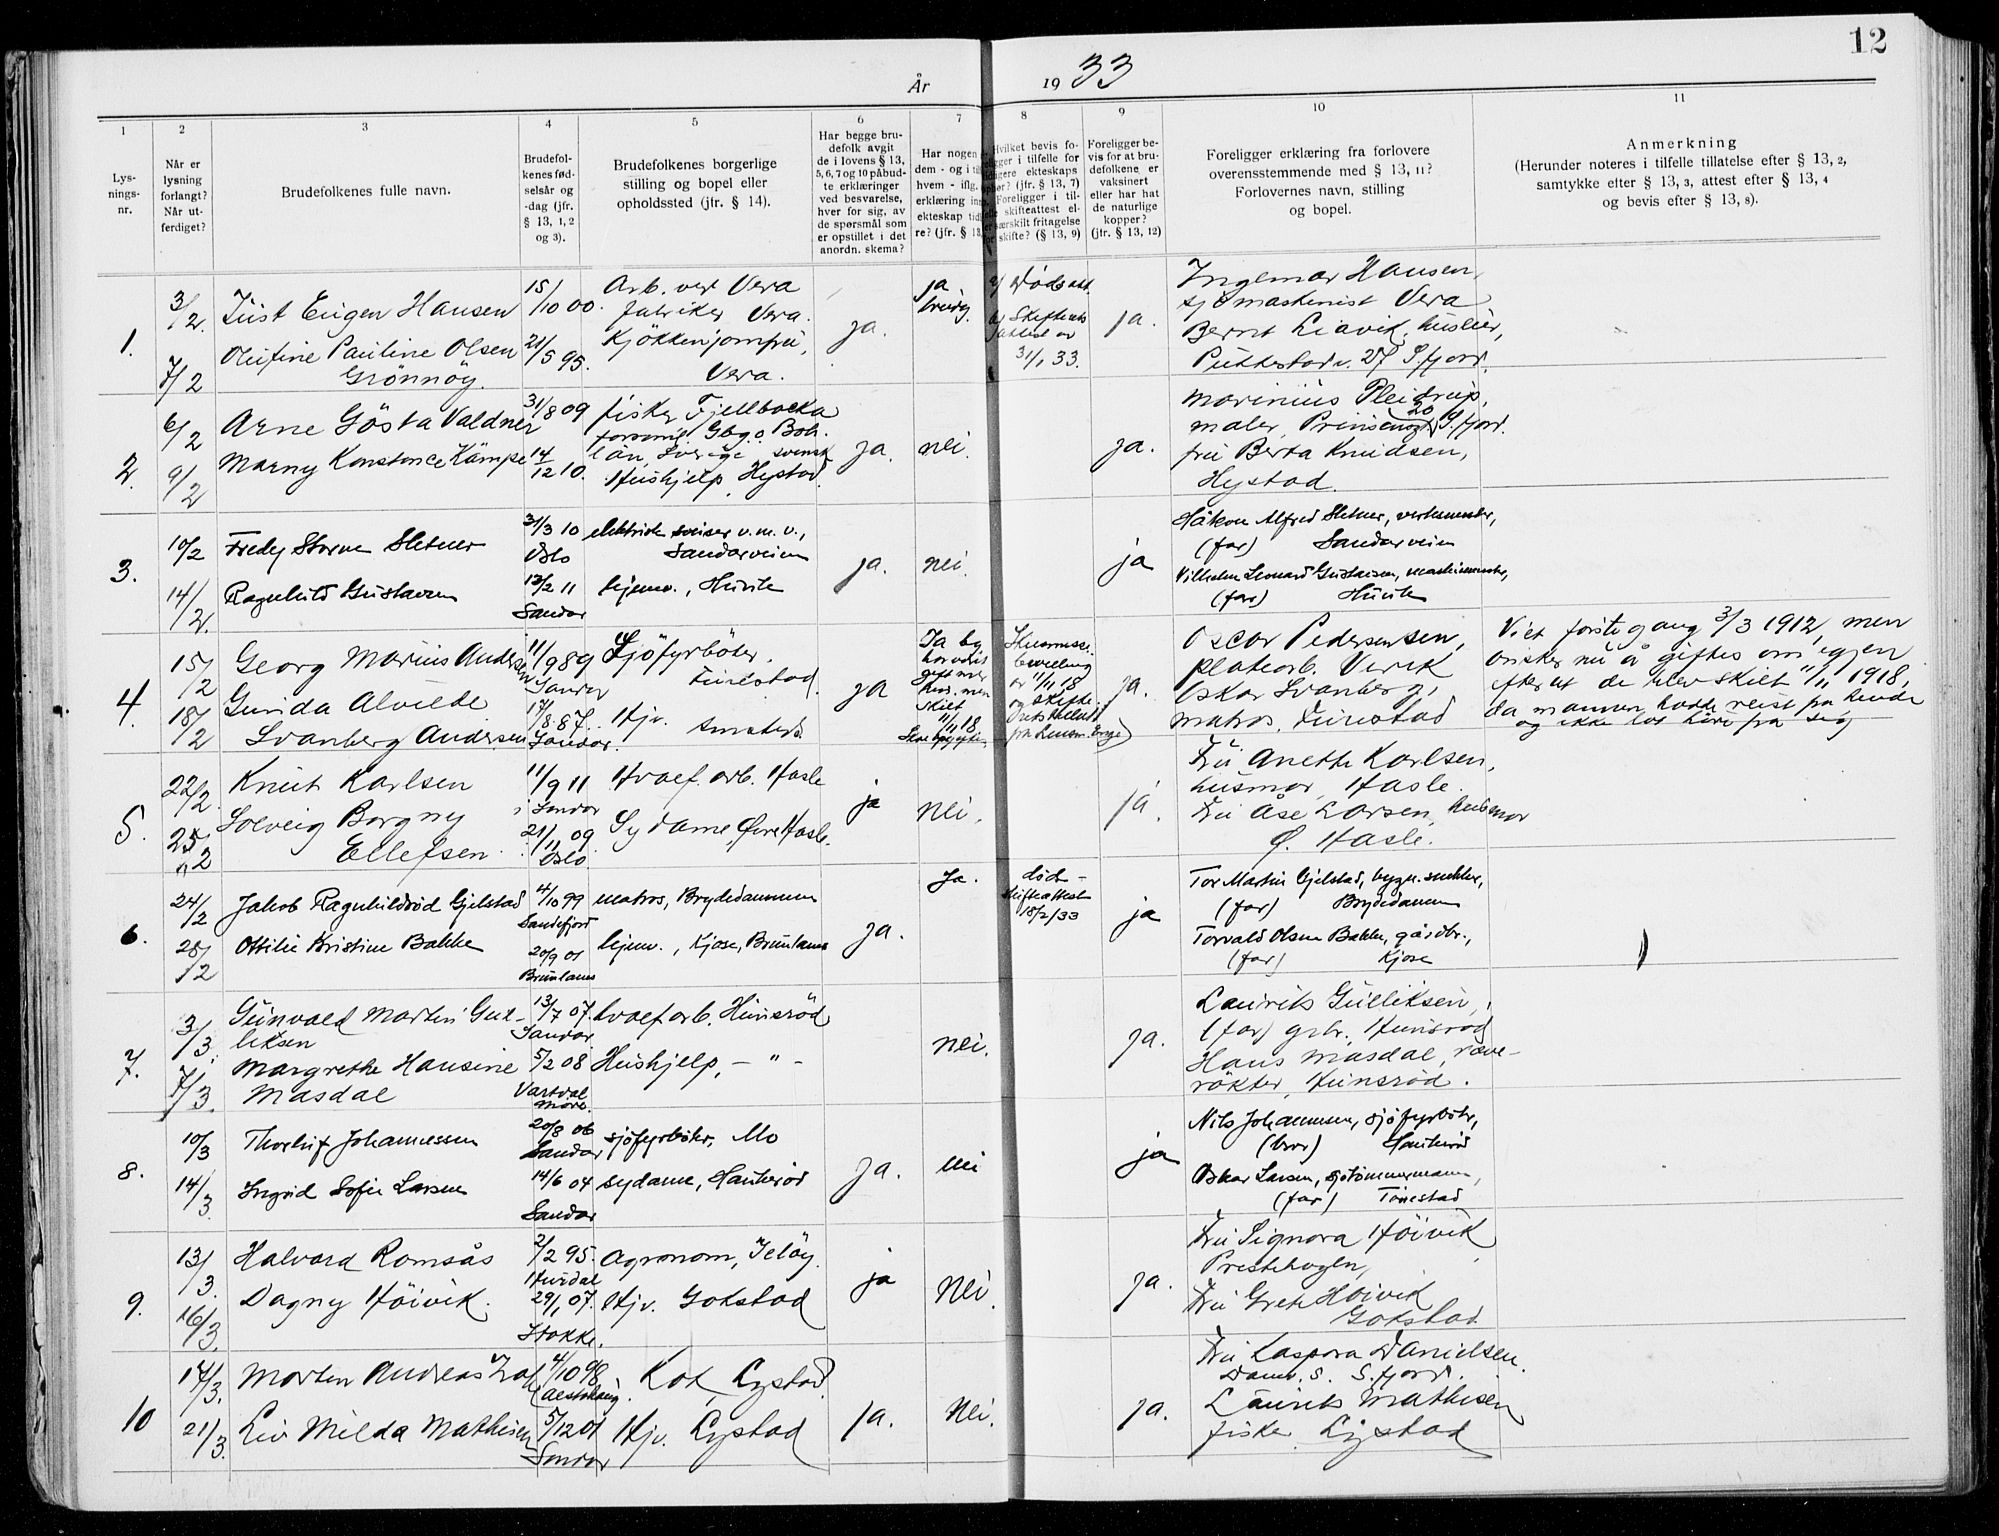 12
År 1933
1
2
3
4
5
6
7
8
9
10
11
Lys-
nings-
nr.
Når er
lysning
forlangt?
Når ut-
ferdiget?
Brudefolkenes fulle navn.
Brudefol-
kenes fød-
selsår og
-dag (jfr.
§ 13, 1, 2
og 3).
Brudefolkenes borgerlige
stilling og bopel eller
opholdssted (jfr. § 14).
Har begge bru-
defolk avgit
de i lovens § 13,
5, 6, 7 og 10 påbud-
te erklæringer
ved besvarelse,
hver for sig, av
de spørsmål som
er opstillet i det
anordn. skema?
Har nogen
dem - og i til
hvem - iflg.
erklæring inn
ekteskap tid
re? (jfr. § 13,
Hvilket bevis fo-
ligger i tilfelle for
tidligere ekteskaps
opher? (jfr. § 13, 7)
Foreligger i til-
felle skifteattest el-
særskilt fritagelse
for skifte? (§ 13, 9)
Foreligger be-
vis for at bru-
defolkene er
vaksinert
eller har hat
de naturlige
kopper?
(jfr. § 13, 12)
Foreligger erklæring fra forlovere
overensstemmende med § 13, 11?
Forlovernes navn, stilling
og bopel.
Anmerkning
(Herunder noteres i tilfelle tillatelse efter § 13, 2,
samtykke efter § 13, 3, attest efter § 13, 4
og bevis efter § 13, 8).
1.
3/2.
7/2
Just Eugen Hansen
Olufine Pauline Olsen
Grönnöy.
15/10 00.
21/5 95.
Arb. ved Vera
fabriker Vera.
Kjökkenjomfru,
Vera.
ja.
ja
a) Dödsatt.
b) Skifte
attest av
31/1 33.
ja.
Ingemar Hansen,
sjömaskinist Vera
Bernt Liavik, huseier,
S.fjord.
2.
6/2
9/2
Arne Gösta Valdner
Marny Konstance Kämpe
31/8 09
14/12 10.
fisker Fjellbacka
Gbg. o. Boh.
län, Sverige svensk
Hushjelp, Hystad.
ja.
nei.
ja.
Marinius Pleidrup,
maler, Prinsensgt 20 S.fjord.
fru Berta Knudsen,
Hystad.
3.
10/2
14/2.
Fredy Storm Sletner
Ragnhild Gustavsen
31/3 10
Oslo
13/2 11
Sandar
elektrisk sveiser v. m. v.,
Sandarveien
hjemv., Huvik
ja.
nei.
ja
Håkon Alfred Sletner, verksmester,
(far) Sandarveien
Vilhelm Leonard Gustavsen, maskinmester,
(far) Huvik
4.
15/2
18/2
Georg Marius Andersen
Gunda Alvilde
Svanberg Andersen
11/9 89
Sandar
17/8 87.
Sandar.
Sjöfyrböter,
Furustad.
Hjv.
ja
Ja beg
gift med
hver. men
skilt
11/11 18
bevilling
av 11/11 18
og skifte
ja.
Oscar Pedersen,
platearb. Verik
Oskar Svanberg,
matros, Furustad
Viet förste gang 3/3 1912, men
önsker nu å giftes om igjen
efter at de blev skilt 11/11 1918,
da mannen hadde reist fra hende
og ikke lot höre fra sig
5.
22/2.
25/2
Knut Karlsen
Solveig Borgny
Ellefsen
11/9 11
i Sandar
21/11 09
Oslo
Hvalf. arb. Hasle
Sydame, Övre Hasle.
ja
nei.
ja.
Fru Anette Karlsen,
husmor, Hasle.
Fru Åse Larsen, husmor
Ö. Hasle.
6.
24/2
28/2
Jakob Ragnhildsröd Gjelstad
Ottilie Kristine Bakke
4/10 99
Sandefjord
20/9 01
Brunlanes
matros, Brydedammen
hjemv., Kjose, Brunlanes
ja.
Ja.
död-
skifteattest
18/2/33
ja
Tor Martin Gjelstad, bygn. snekker,
(far) Brydedammen
Torvald Olsen Bakke, gårdbr.,
(far) Kjose
7.
3/3.
7/3.
Gunvald Martin Gul-
liksen
Margrethe Hansine
Masdal
13/7 07.
Sandar.
5/2 08
Vartdal
Möre.
hvalfarb. Hunsröd
Hushjelp, - " -
nei.
ja.
Laurits Gulliksen,
(far) grbr. Hunsröd
Hans Masdal, reve-
rökter, Hunsröd.
8.
10/3
14/3.
Thorleif Johannessen
Ingrid Sofie Larsen
20/8 06
Sandar
14/6 04
Sandar
sjöfyrböter, Mo
sydame, Haukeröd
ja.
nei
ja
Nils Johannessen, sjöfyrböter,
(bror) Haukeröd
Oskar Larsen, sjötömmermann,
(far)
9.
13/3.
16/3.
Halvard Romsås
Dagny Höivik.
2/2 95.
Hurdal
29/1 07.
Stokke.
Agronom, Jelöy.
Hjv. Gokstad
ja
Nei.
ja.
Fru Signora Höivik
Fru Grete Höivik
Gokstad.
10
17/3.
21/3.
Morten Andreas
Liv Milda Mathisen
4/10 98
5/12 01
Sandar
Kok, Lystad.
Hjv. Lystad
ja.
Nei.
ja.
Fru Kaspara Danielsen.
S.fjord.
Laurits Mathisen
fisker, Lystad